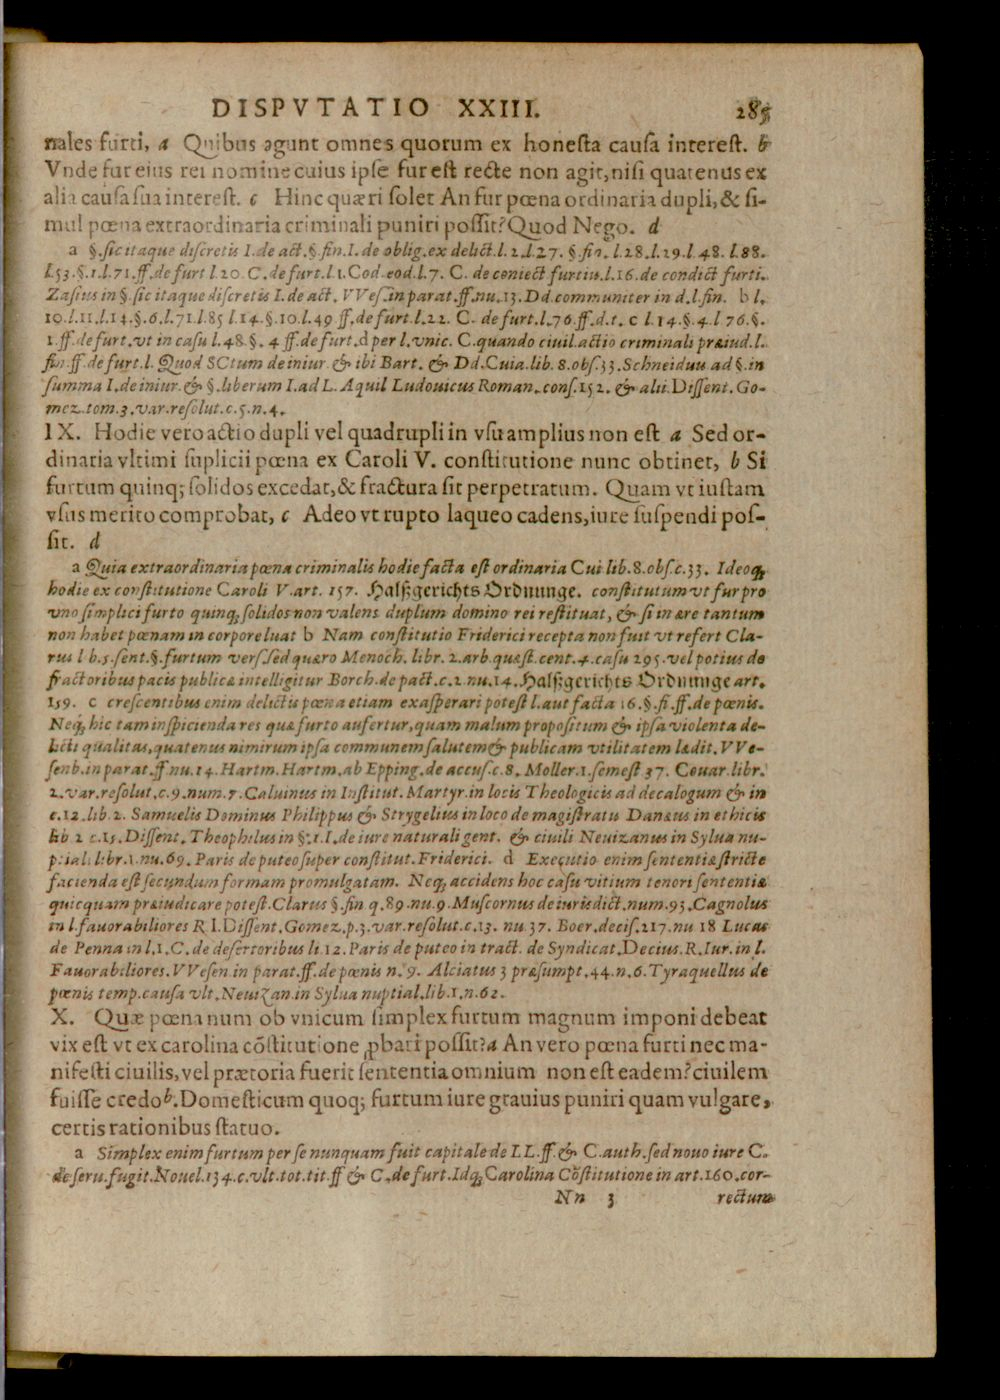 DISPVTATIO XXIII. 285
nales furti, a Quibus agunt omnes quorum ex honesta causa interest. b
Vnde fur eius rei nomine cuius ipse fur est recte non agit, nisi quatenus ex
alia causa sua interest. c Hinc quæri solet An fur pœna ordinaria dupli, & si-
mul pœna extraordinaria criminali puniri possit? Quod Nego. d
a §. sic itaque discretis I. de act. §. fin. I. de oblig. ex delict. l. 2. l. 27. §. fin. l. 28. l. 29. l. 48. l. 88.
l. 53. §. 1. l. 71. ff. de furt l. 20. C. de furt. l. 1. Cod. eod. l. 7. C. de coniect furtiu. l. 16. de condict furti.
Zasius in §. sic itaque discretis I. de act. VVes. in parat. ff. nu. 13. Dd. communiter in d. l. fin. b l.
10. l. 11. l. 14. §. 6. l. 71. l. 85 l. 14. §. 10. l. 49 ff. de furt. l. 22. C. de furt. l. 76. ff. d. t. c l. 14. §. 4. l 76. §.
1. ff. de furt. vt in casu l. 48. §. 4 ff. de furt. d per l. vnic. C. quando ciuil. actio criminali præiud. l.
fin. ff. de furt. l. Quod SCtum de iniur. & ibi Bart. & Dd. Cuia. lib. 8. obs. 33. Schneiduu ad §. in
summa I. de iniur. & §. liberum I. ad L. Aquil Ludouicus Roman. cons. 152. & alii. Dissent. Go-
mez. tom. 3. var. resolut. c. 5. n. 4.
IX. Hodie vero actio dupli vel quadrupli in vsu amplius non est a Sed or-
dinaria vltimi suplicii pœna ex Caroli V. constitutione nunc obtinet, b Si
furtum quinq; solidos excedat, & fractura sit perpetratum. Quam vt iustam
vsus merito comprobat, c Adeo vt rupto laqueo cadens, iure suspendi pos-
sit. d
a Quia extraordinaria pœna criminalis hodie facta est ordinaria Cui lib. 8. obs. c. 33. Ideoq;
hodie ex constitutione Caroli V. art. 157. Halßgerichts Ordnunge. constitutum vt fur pro
vno simplici furto quinq; solidos non valens duplum domino rei restituat, & si in ære tantum
non habet pœnam in corpore luat b Nam constitutio Friderici recepta non fuit vt refert Cla-
rus l b. 5. sent. §. furtum vers. sed quæro Menoch. libr. 2. arb. quæst. cent. 4. casu 295. vel potius de
fractoribus pacis publicæ intelligitur Borch. de pact. c. 2. nu. 14. Halßgerichts Ordnunge art.
159. c crescentibus enim delictis pœna etiam exasperari potest l. aut facta 16. §. fi. ff. de pœnis.
Neq; hic tam inspicienda res quæ furto aufertur, quam malum propositum & ipsa violenta de-
licti qualitas, quatenus nimirum ipsa communem salutem & publicam vtilitatem lædit. VVe-
senb. in parat. ff. nu. 14. Hartm. Hartm. ab Epping. de accus. c. 8. Moller. 1. semest 37. Couar. libr.
2. var. resolut. c. 9. num. 7. Caluinus in Institut. Martyr. in locis Theologicis ad decalogum & in
c. 12. lib. 2. Samuelis Dominus Philippus & Strygelius in loco de magistratu Danæus in ethicis
lib 2 c. 15. Dissent. Theophilus in §. 1. I. de iure naturali gent. & ciuili Neuizanus in Sylua nu-
ptial. libr. 1. nu. 69. Paris de puteo super constitut. Friderici. d Executio enim sententiæ stricte
facienda est secundum formam promulgatam. Neq; accidens hoc casu vitium tenori sententiæ
quicquam præiudicare potest. Clarus §. fin q. 89. nu. 9. Muscornus de iurisdict. num. 93. Cagnolus
in l. fauorabiliores R I. Dissent. Gomez. p. 3. var. resolut. c. 13. nu. 37. Boer. decis. 217. nu 18 Lucas
de Penna in l. 1. C. de desertoribus li. 12. Paris de puteo in tract. de Syndicat. Decius. R. Iur. in l.
Fauorabiliores. VVesen. in parat. ff. de pœnis n. 9. Alciatus 3 præsumpt. 44. n. 6. Tyraquellus de
pœnis temp. causa vlt. Neuizan. in Sylua nuptial. lib. 1. n. 62.
X. Quæ pœna num ob vnicum simplex furtum magnum imponi debeat
vix est vt ex carolina cõstitutione ꝓbari possit? a An vero pœna furti nec ma-
nifesti ciuilis, vel prætoria fuerit sententia omnium non est eadem? ciuilem
fuisse credo b. Domesticum quoq; furtum iure grauius puniri quam vulgare,
certis rationibus statuo.
a Simplex enim furtum per se nunquam fuit capitale de I I. ff. & C. auth. sed nouo iure C.
de seru. fugit. Nouel. 134. c. vlt. tot. tit. ff & C. de furt. Idq; Carolina Cõstitutione in art. 160. cor-
Nn 3 rectum